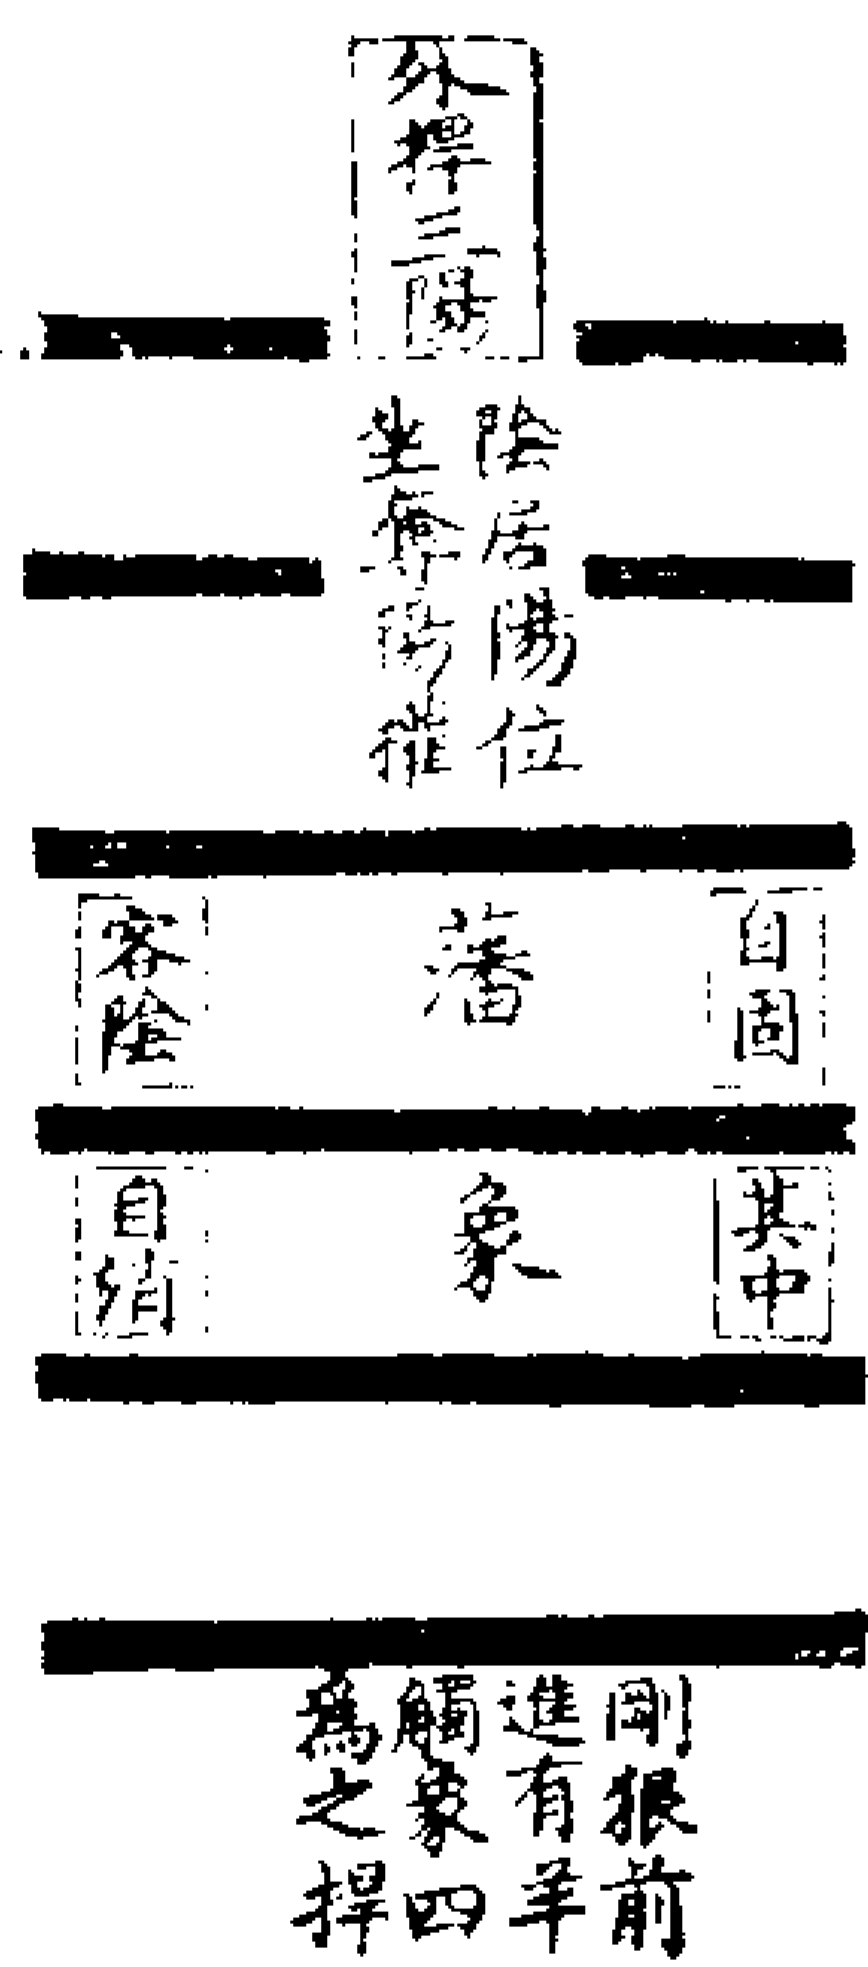 外捍三陽
陰居陽位
坐奪陽權
自固
藩
容陰
其中
象
自消
剛狠前
進有羊
觸象四
為之捍